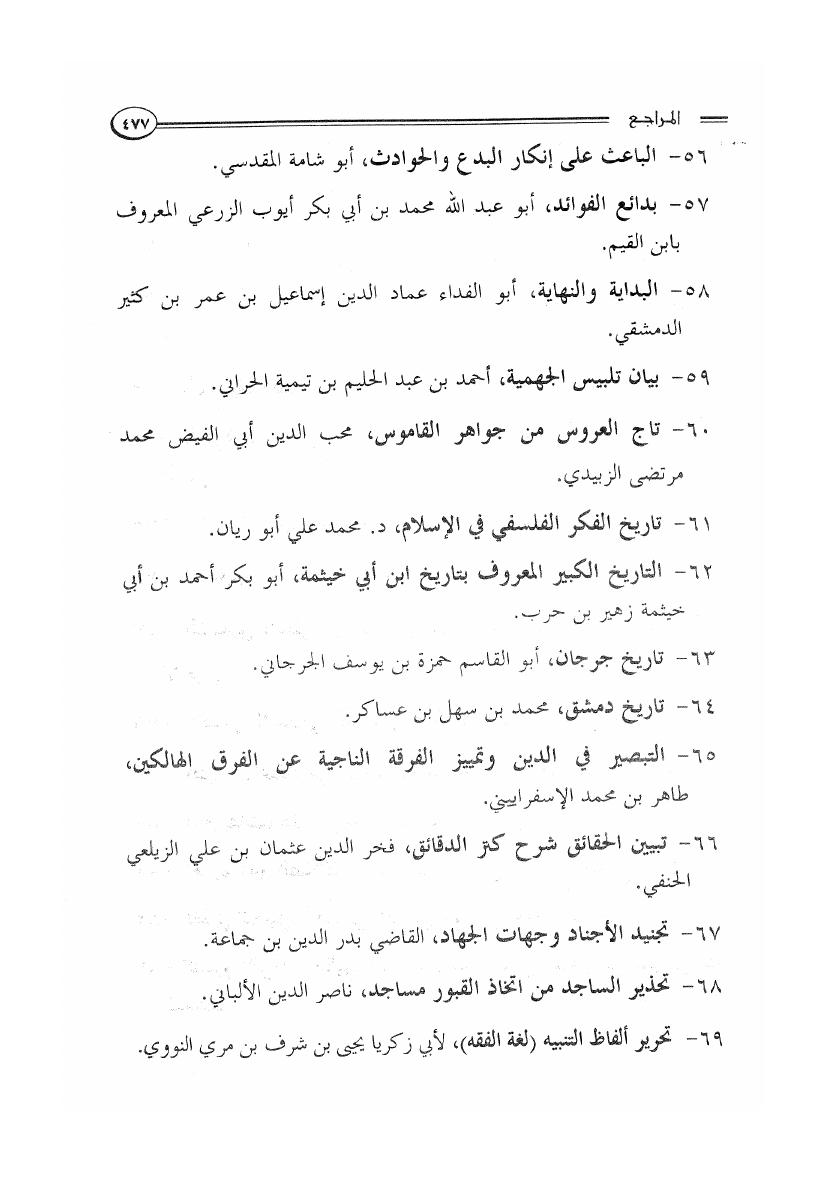 المراجع ٤٧٧
٥٦- الباعث على إنكار البدع والحوادث، أبو شامة المقدسي.
٥٧- بدائع الفوائد، أبو عبد الله محمد بن أبي بكر أيوب الزرعي المعروف
بابن القيم.
٥٨- البداية والنهاية، أبو الفداء عماد الدين إسماعيل بن عمر بن كثير
الدمشقي.
٥٩- بيان تلبيس الجهمية، أحمد بن عبد الحليم بن تيمية الحراني.
٦٠- تاج العروس من جواهر القاموس، محب الدين أبي الفيض محمد
مرتضى الزبيدي.
٦١- تاريخ الفكر الفلسفي في الإسلام، د. محمد علي أبو ريان.
٦٢- التاريخ الكبير المعروف بتاريخ ابن أبي خيثمة، أبو بكر أحمد بن أبي
خيثمة زهير بن حرب.
٦٣- تاريخ جرجان، أبو القاسم حمزة بن يوسف الجرجاني.
٦٤- تاريخ دمشق، محمد بن سهل بن عساكر.
٦٥- التبصير في الدين وتمييز الفرقة الناجية عن الفرق الهالكين،
طاهر بن محمد الإسفراييني.
٦٦- تبيين الحقائق شرح كنز الدقائق، فخر الدين عثمان بن علي الزيلعي
الحنفي.
٦٧- تجنيد الأجناد وجهات الجهاد، القاضي بدر الدين بن جماعة.
٦٨- تحذير الساجد من اتخاذ القبور مساجد، ناصر الدين الألباني.
٦٩- تحرير ألفاظ التنبيه (لغة الفقه)، لأبي زكريا يحيى بن شرف بن مري النووي.